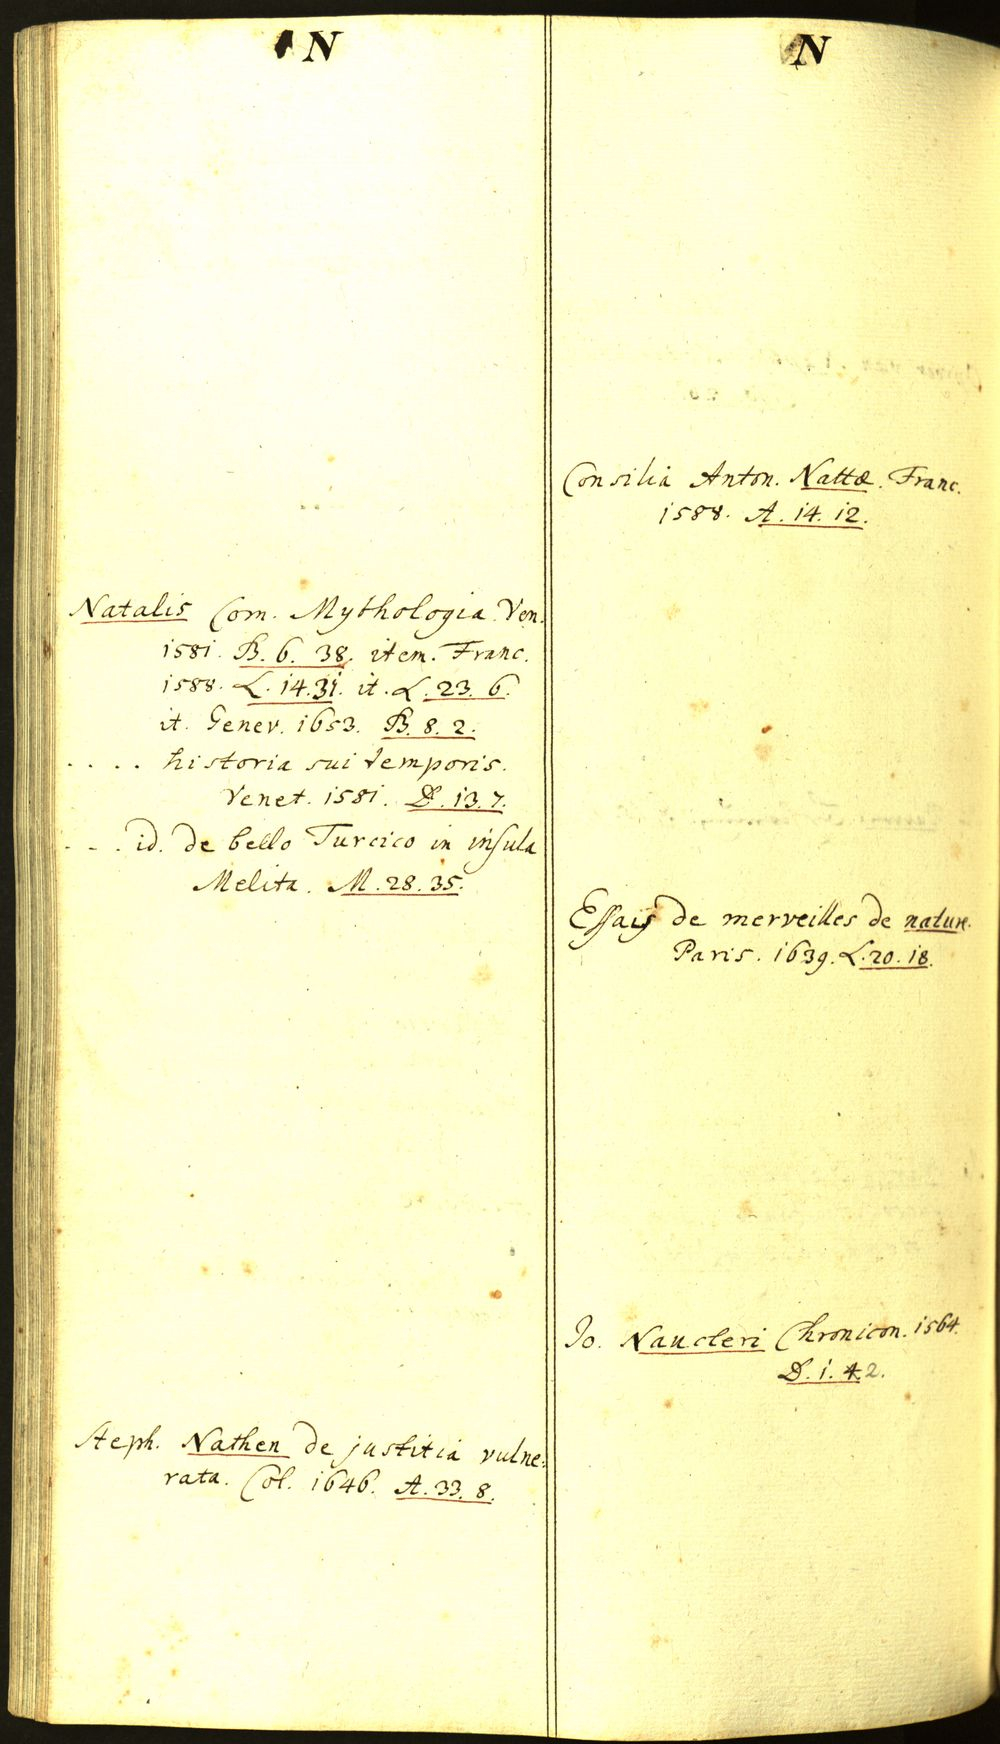 N
Natalis Com. Mythologia. Ven.
1581. B. 6. 38. item. Franc.
1588. L. 14. 31. it. L. 23. 6.
it. Genev. 1653. B. 8. 2.
. . . . historia sui temporis.
Venet. 1581. D. 13. 7.
- - . id. de bello Turcico in insula
Melita. M. 28. 35.
Steph. Nathen de justitia vulne:
rata. Col. 1646. A. 33. 8.
N
Consilia Anton. Nattæ. Franc.
1588. A. 14. 12.
Essais de merveilles de nature.
Paris. 1639. L. 20. 18.
Io. Naucleri Chronicon. 1564.
D. 1. 42.